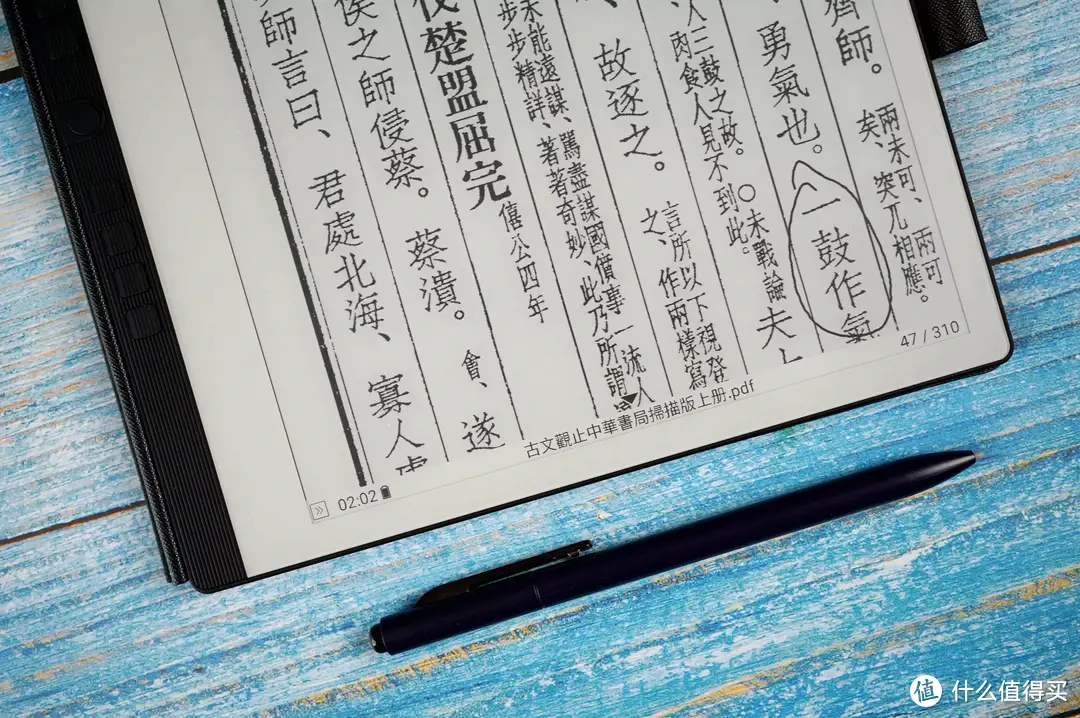 齊師。
兩未可、兩可
矣、突兀相應。
勇氣也。一鼓作氣
人三鼓之故。○未戰論
肉食人見不到此。
夫
故逐之。
言所以下視登
之、作兩樣寫
未能遠謀、罵盡謀國僨事一流人
步步精詳、著著奇妙、此乃所謂
伐楚盟屈完
僖公四年
侯之師侵蔡。蔡潰。會、遂
師言曰、君處北海、寡人處
47 / 310
古文觀止中華書局掃描版上册.pdf
02:02
值 什么值得买